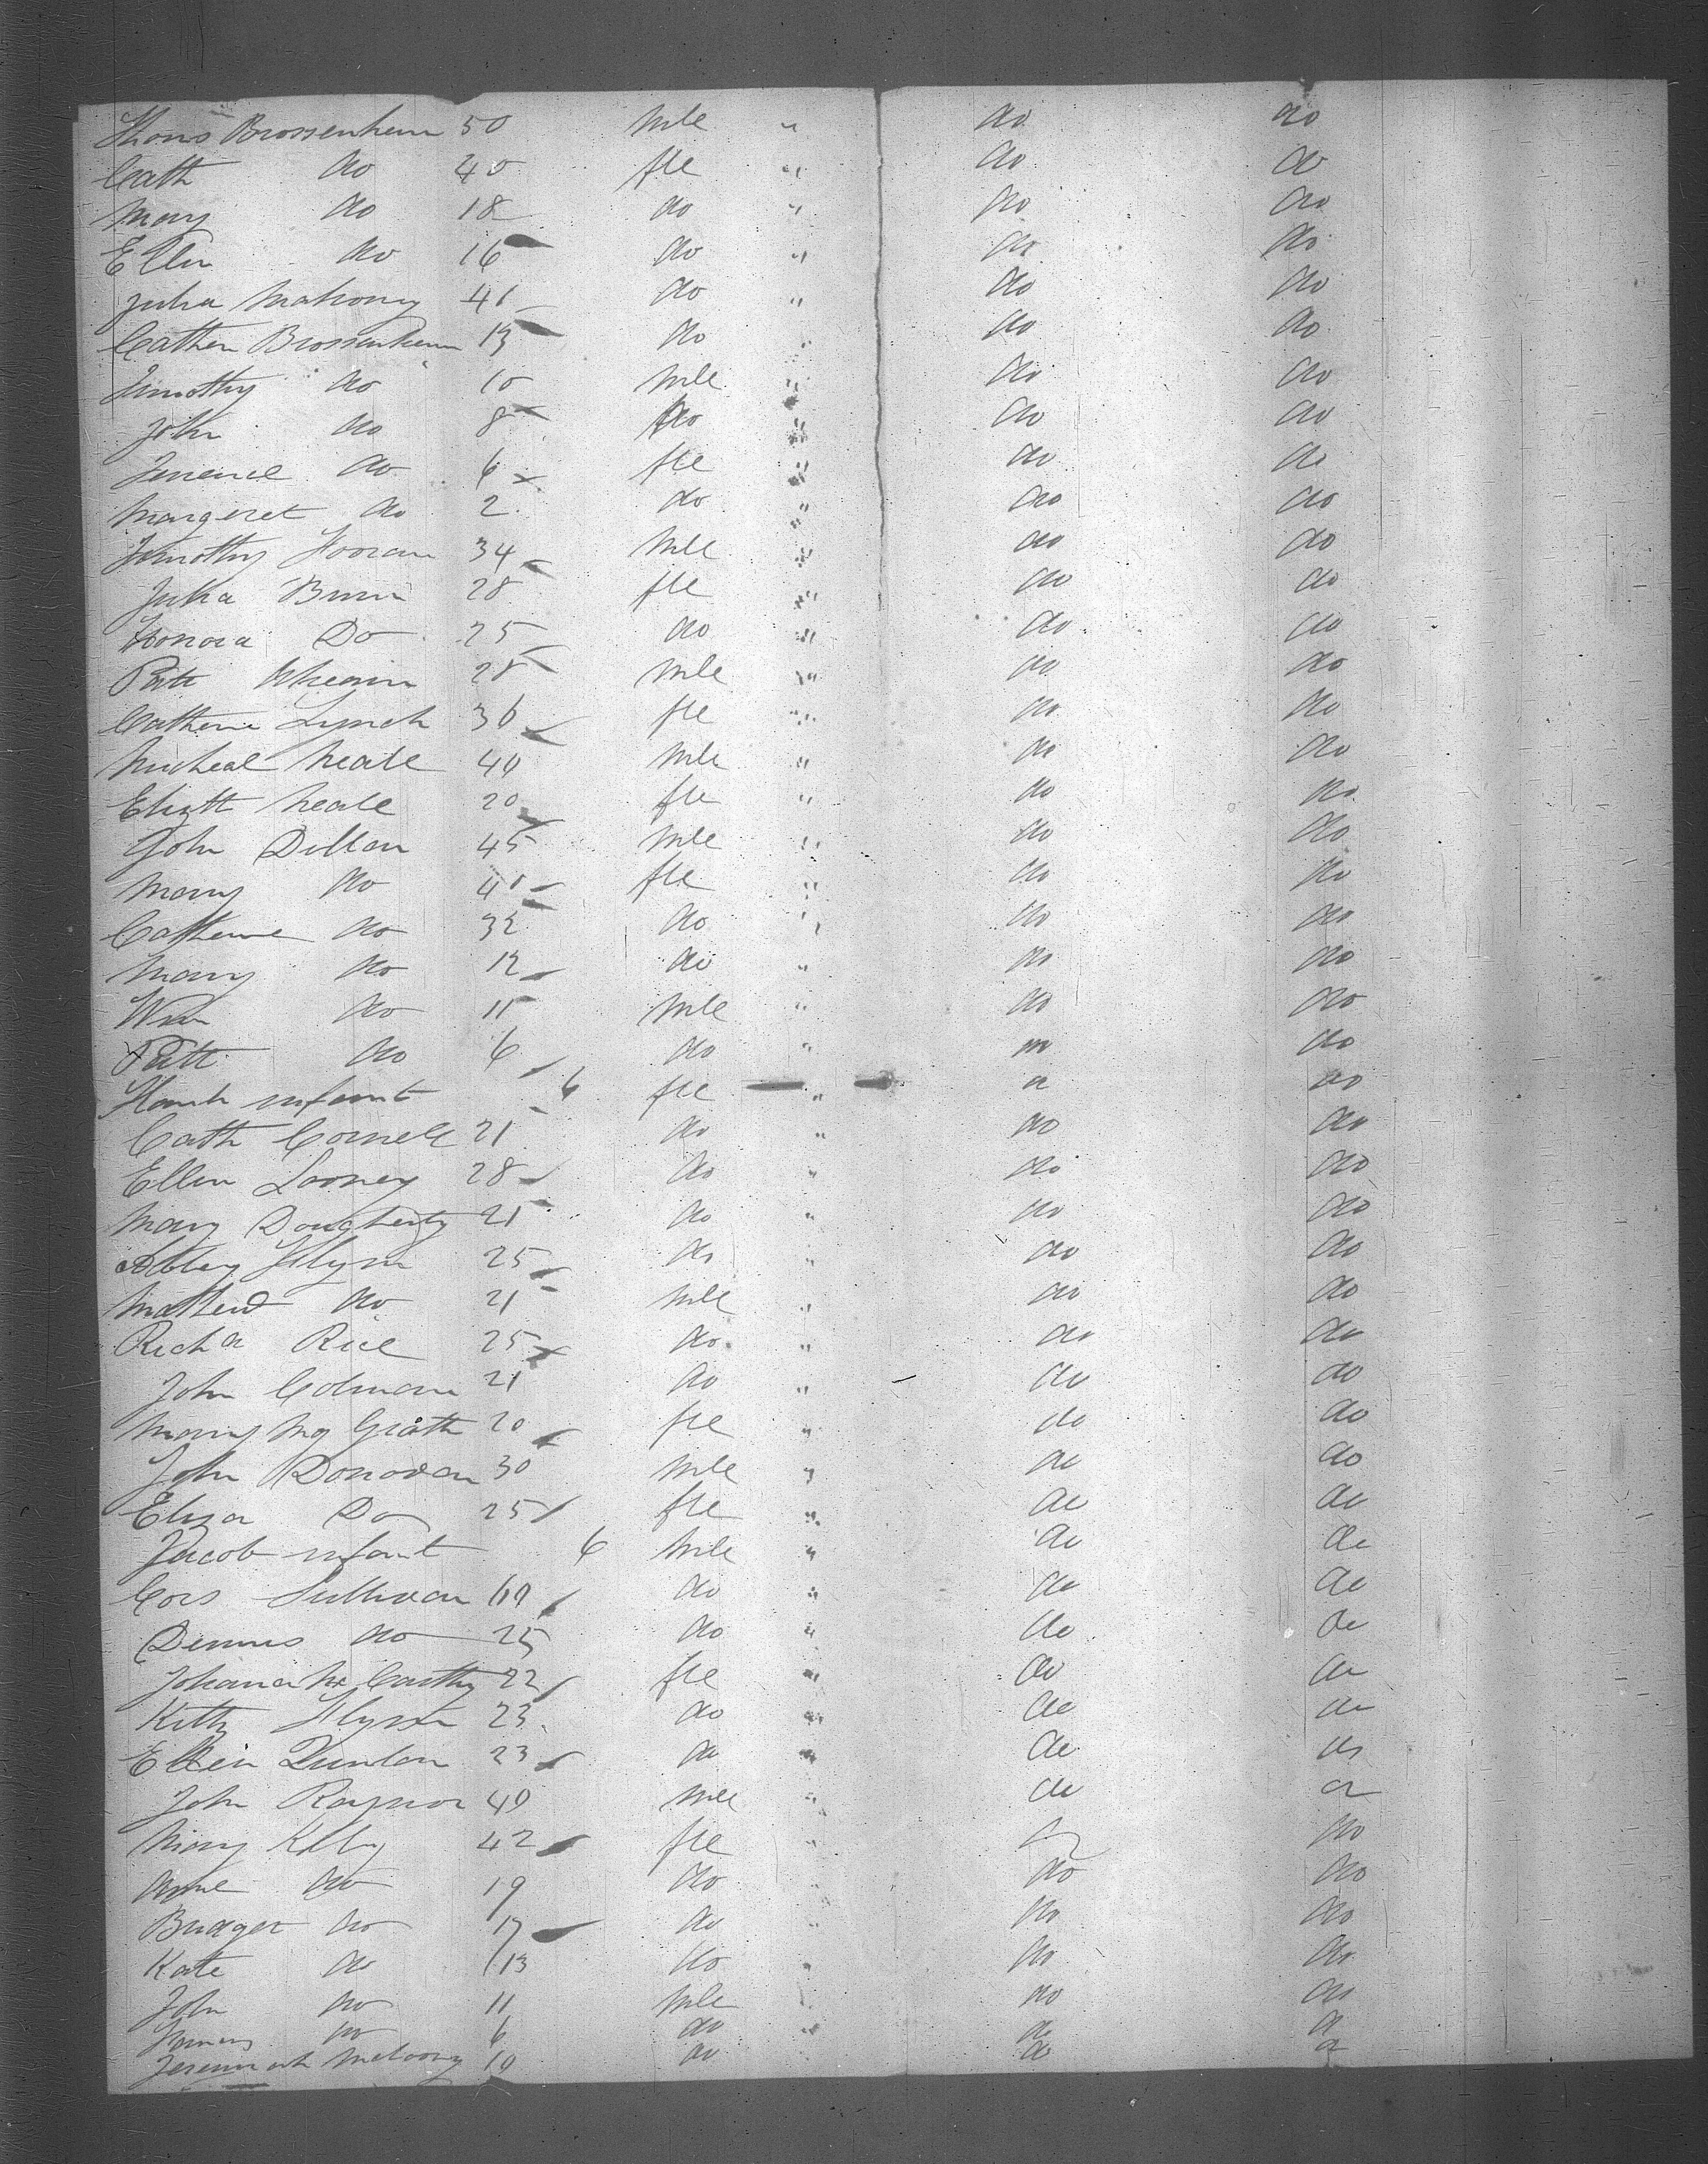 Thons Brossenhem 50 mle " do do
Cath do 40 fle " do do
Mary do 18 do " do do
Ellen do 16 do " do do
Julia Mahony 41 do " do do
Cathen Brossenhem 13 do " do do
Timothy do 10 mle " do do
John do 8 do " do do
do 6 fle " do do
Margeret do 2 do " do do
Timothy Hooran 34 mle " do do
Julia 28 fle " do do
Honora Do 25 do " do do
Patt 28 mle " do do
Catherine Lynch 36 fle " do do
Micheal Neale 40 mle " do do
Elizth Neale 20 fle " do do
John Dillon 45 mle " do do
Mary do 41 fle " do do
Catherine do 32 do " do do
Mary do 12 do " do do
Wm do 11 mle " do do
Patt do 6 do " do do
infant 6 fle " do
Cath Cornell 21 do " do do
Ellen Looney 28 do " do do
Mary Dougherty 21 do " do do
Abbey Flynn 25 do " do do
Mathew do 21 mle " do do
Richd Rice 25 do " do do
John Colman 21 do " do do
Mary Mg Grath 20 fle " do do
John Donovan 30 mle " do do
Eliza Do 25 fle " do do
Jacob infant 6 mle " do do
Cors Sullivan 60 do " do do
Dennis do 25 do " do do
Johana Mc Carthy 22 fle " do do
Kitty Flynn 23 do " do do
Ellen Quinlan 23 do " do do
John Raynor 40 mle " do do
Mary Kelly 42 fle " do
Anne do 19 do do do
Bridget do 17 do " do do
Kate do 13 do " do do
John do 11 mle do do
James do 6 do " do do
Jeremiah 10 do do do